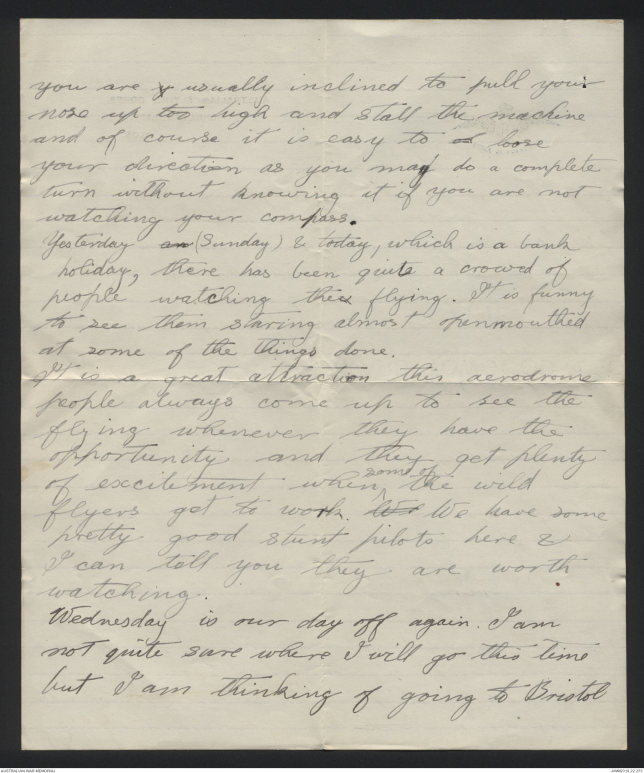 you are usually inclined to pull your
nose up too high and stall the machine
and of course it is easy to loose
your direction as you may do a complete
turn without knowing it if you are not
watching your compass.
Yesterday (Sunday) & today, which is a bank
holiday, there has been quite a crowd of
people watching the flying. It is funny
to see them staring almost openmouthed
at some of the things done.
It is a great attraction this aerodrome
people always come up to see the
flying whenever they have the
opportunity and they get plenty
of excitement when some of the wild
flyers get to work. We have some
pretty good stunt pilots here &
I can tell you they are worth
watching.
Wednesday is our day off again. I am
not quite sure where I will go this time
but I am thinking of going to Bristol
AUSTRALIAN WAR MEMORIAL